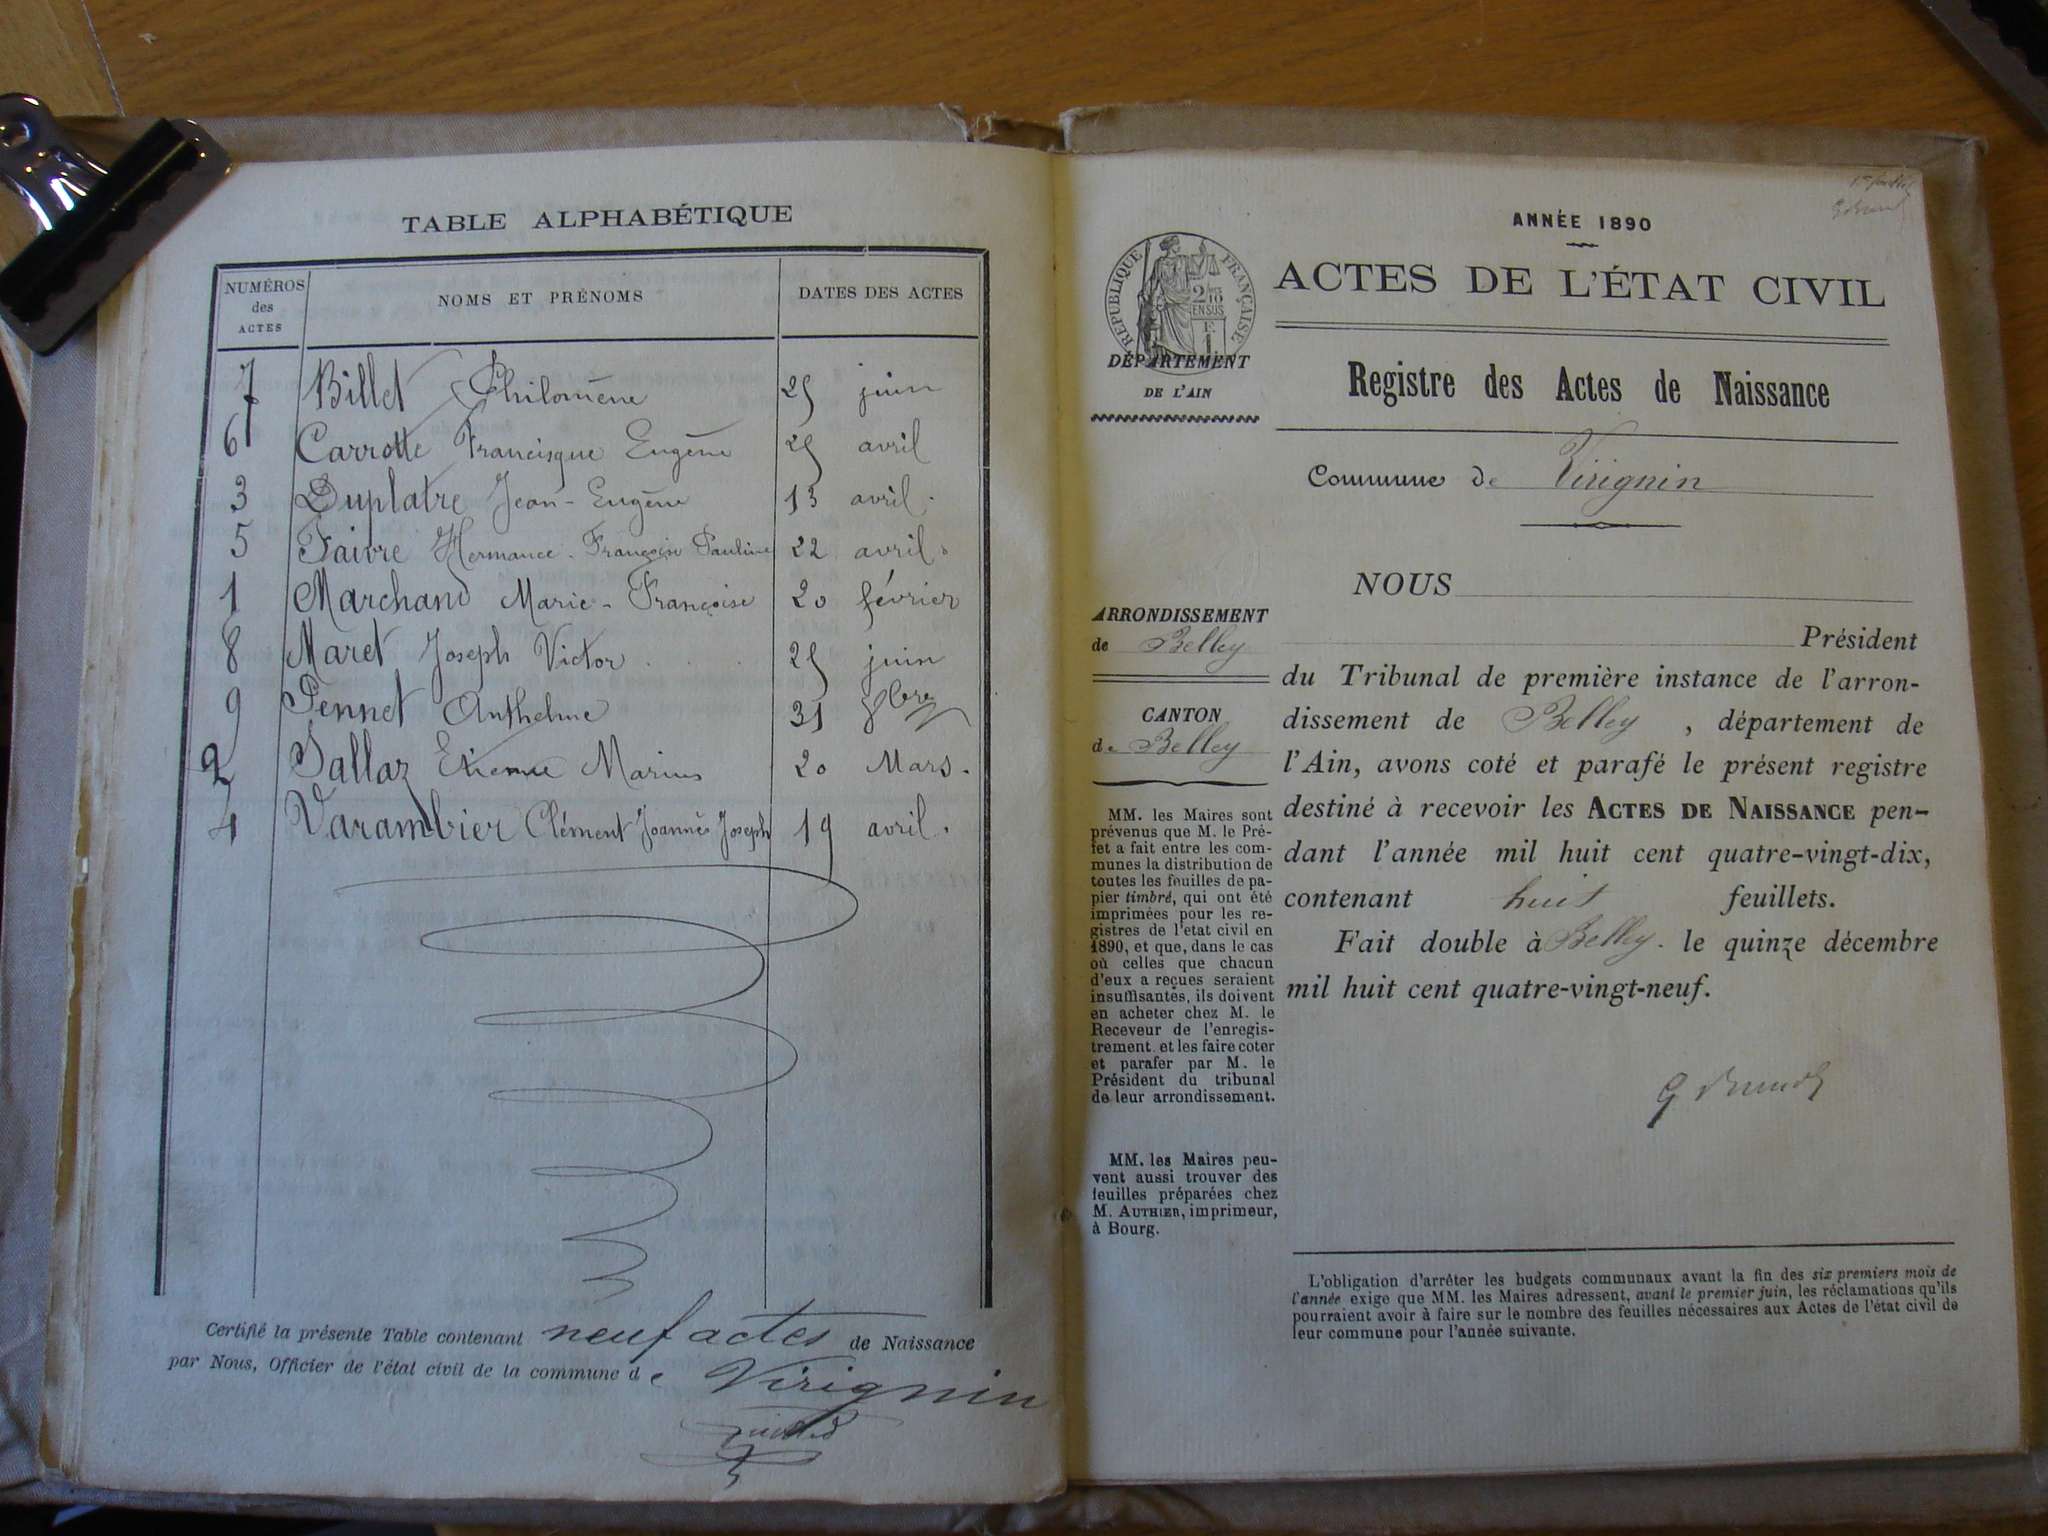 TABLE ALPHABÉTIQUE
NUMÉROS des ACTES NOMS ET PRÉNOMS DATES DES ACTES
7 Billet Philomène 25 juin
6 Carrotte Francisque Eugène 25 avril
3 Duplatre Jean-Eugène 13 avril.
5 Faivre Hermance-Françoise Pauline 22 avril.
1 Marchand Marie-Françoise 20 février
8 Maret Joseph Victor 25 juin
9 Pennet Anthelme 31 8bre
2 Sallaz Etienne Marius 20 Mars.
4 Varambier Clément Joannès Joseph 19 avril.
Certifié la présente Table contenant neuf actes de Naissance
par Nous, Officier de l'état civil de la commune de Virignin
ANNÉE 1890
RÉPUBLIQUE FRANÇAISE
2/10 EN SUS
ACTES DE L'ÉTAT CIVIL
DÉPARTEMENT
DE L'AIN
Registre des Actes de Naissance
Commune de Virignin
ARRONDISSEMENT
de Belley
CANTON
de Belley
MM. les Maires sont
prévenus que M. le Pré-
fet a fait entre les com-
munes la distribution de
toutes les feuilles de pa-
pier timbré, qui ont été
imprimées pour les re-
gistres de l'etat civil en
1890, et que, dans le cas
où celles que chacun
d'eux a reçues seraient
insuffisantes, ils doivent
en acheter chez M. le
Receveur de l'enregis-
trement et les faire coter
et parafer par M. le
Président du tribunal
de leur arrondissement.
MM. les Maires peu-
vent aussi trouver des
feuilles préparées chez
M. AUTHIER, imprimeur,
à Bourg.
NOUS
Président
du Tribunal de première instance de l'arron-
dissement de Belley, département de
l'Ain, avons coté et parafé le présent registre
destiné à recevoir les ACTES DE NAISSANCE pen-
dant l'année mil huit cent quatre-vingt-dix,
contenant huit feuillets.
Fait double à Belley. le quinze décembre
mil huit cent quatre-vingt-neuf.
L'obligation d'arrêter les budgets communaux avant la fin des six premiers mois de
l'année exige que MM. les Maires adressent, avant le premier juin, les réclamations qu'ils
pourraient avoir à faire sur le nombre des feuilles nécessaires aux Actes de l'état civil de
leur commune pour l'année suivante.